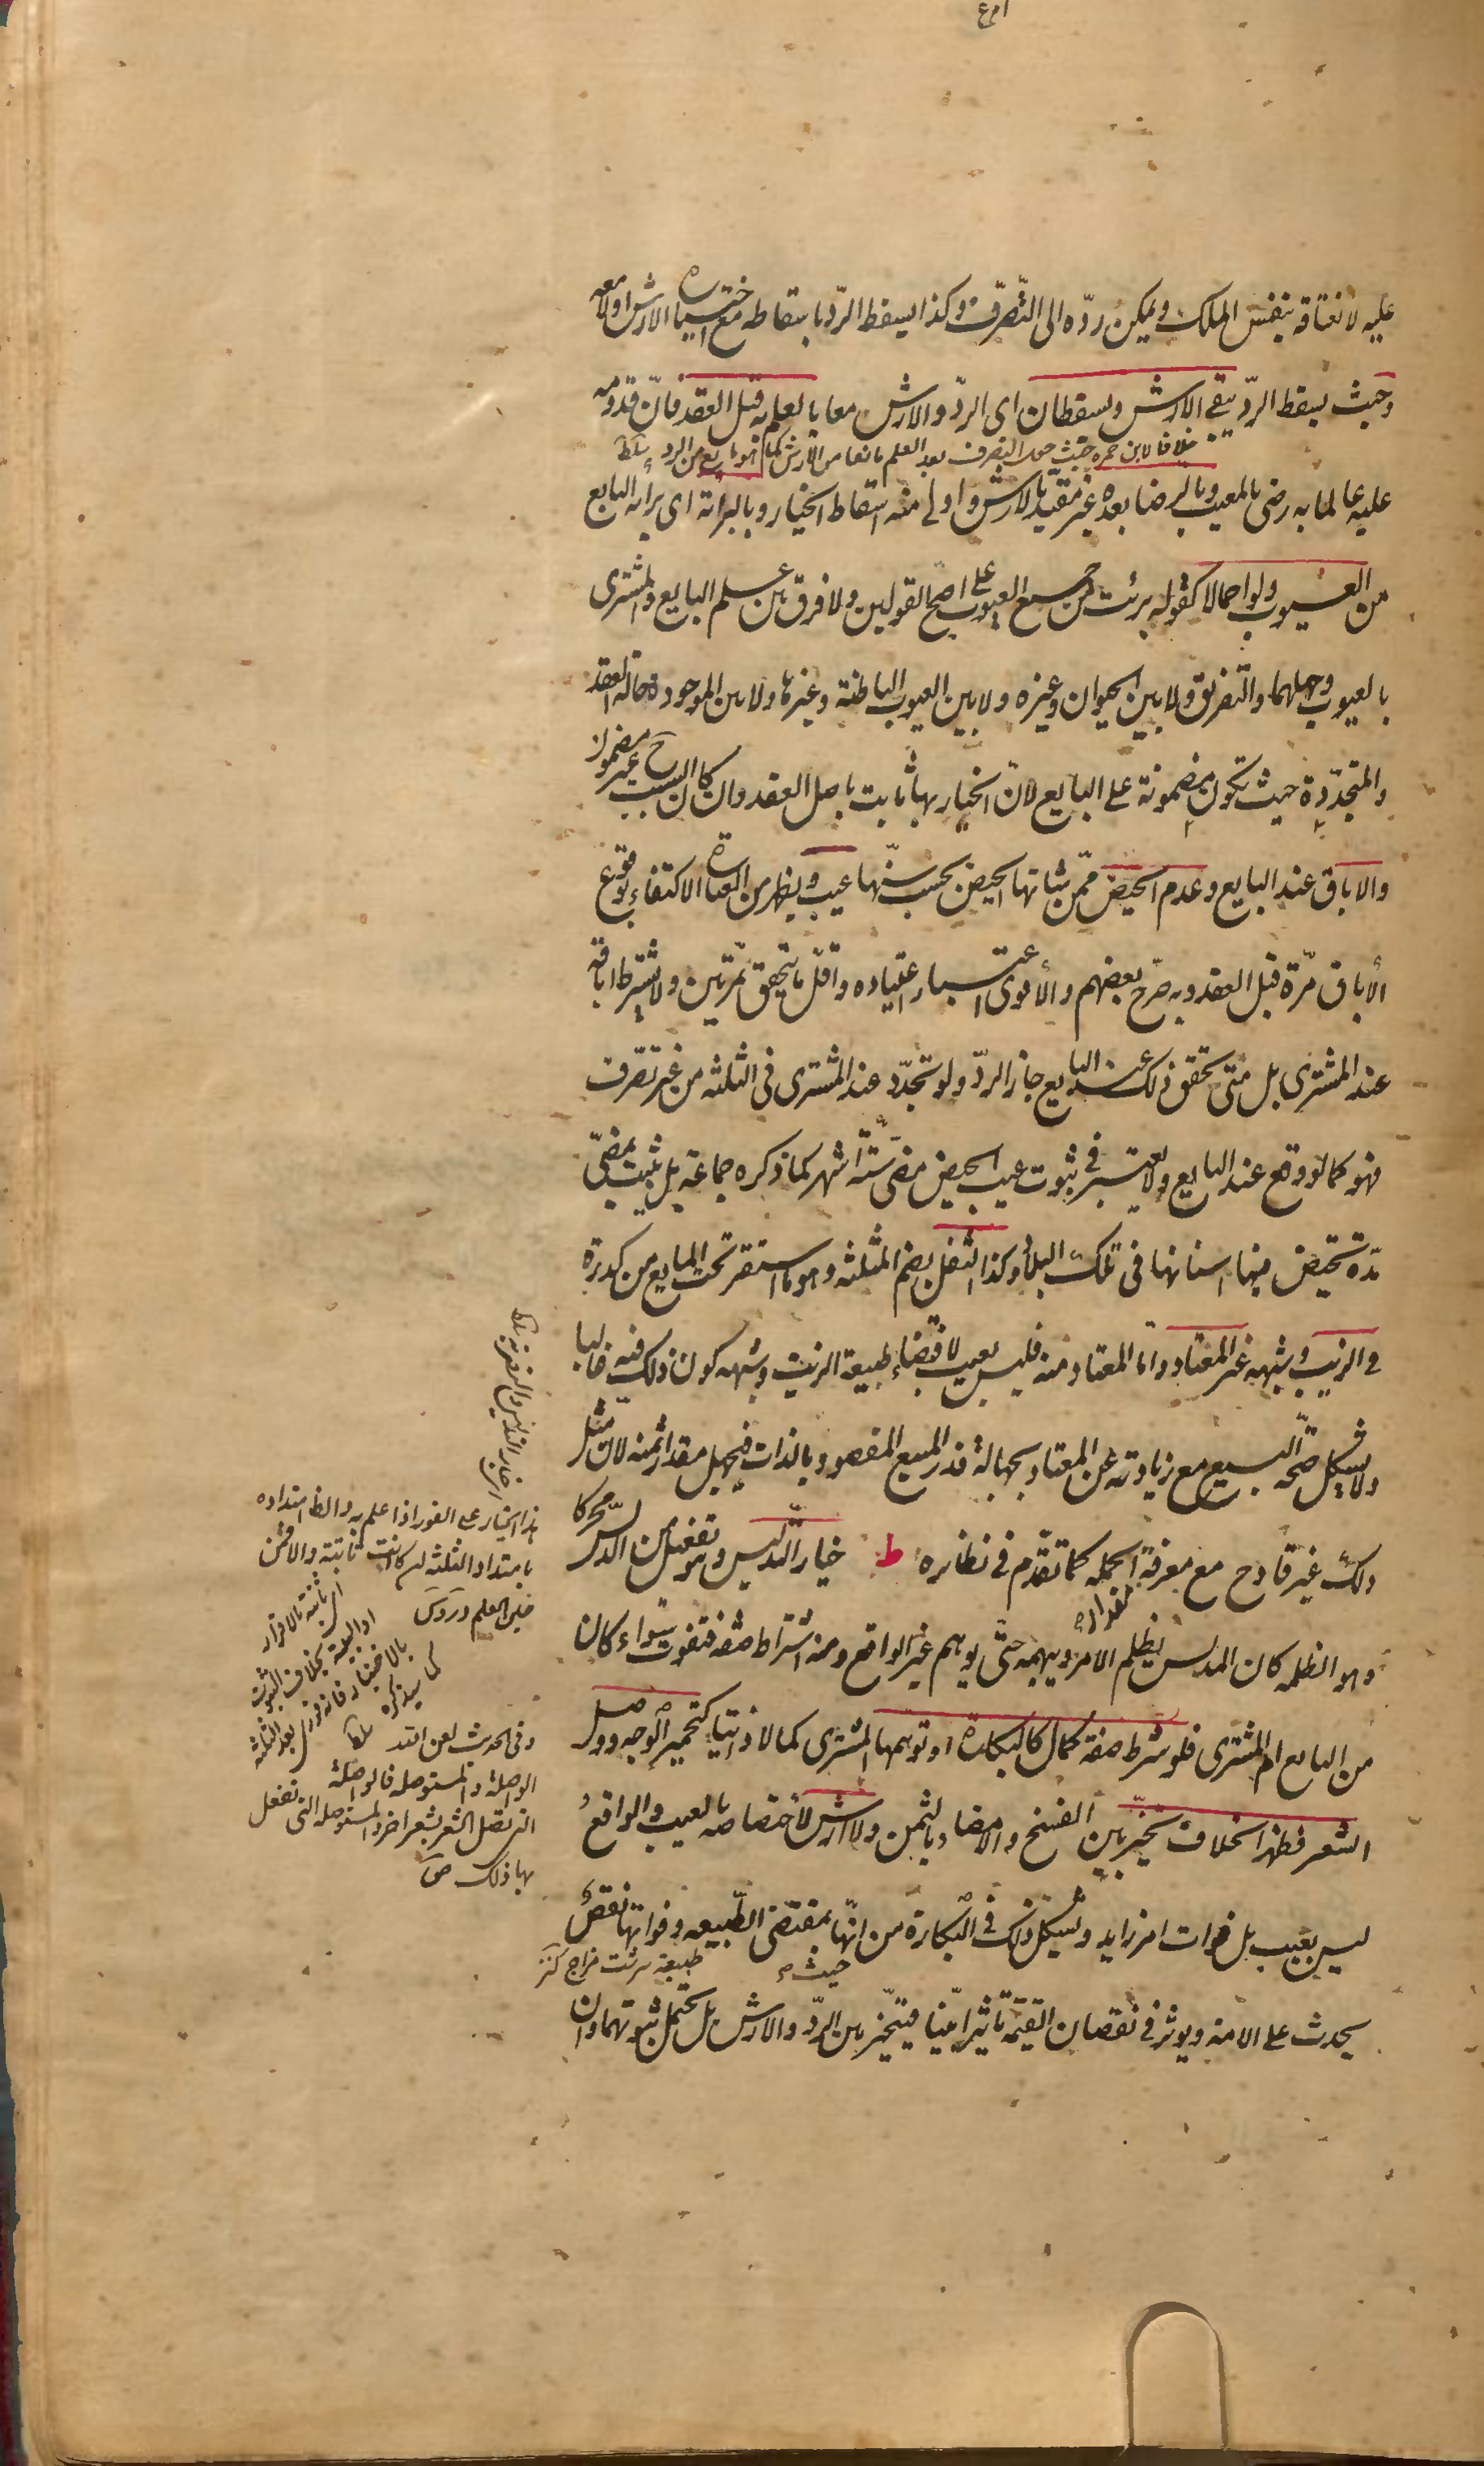 عليه لانعتاقه بنفس الملك ويمكن ردّه الى التّصرّف وكذا يسقط الردّ باسقاطه مع اختياره الارش او لا معه
وحيث يسقط الردّ يبقى الارش ويسقطان اى الردّ والارش معا بالعلم به قبل العقد فانّ قدومه
خلافا لابن حمزه حيث جعل التصرف بعد العلم مانعا من الارش كما هو مانع من الرد
عليه عالما به رضى بالمعيب وبالرضا به بعده غير مقيّد بالارش واولى منه اسقاط الخيار وبالبرائة اى برائه البايع
من العيوب ولو اجمالا كقوله برئت من جميع العيوب على اصحّ القولين ولا فرق بين علم البايع والمشترى
بالعيوب وجهلهما والتفريق ولا بين الحيوان وغيره ولا بين العيوب الباطنة وغيرها ولا بين الموجودة حاله العقد
والمتجدّدة حيث تكون مضمونة على البايع لانّ الخيار بها ثابت باصل العقد وان كان السبب ح غير مضمون
والاباق عند البايع وعدم الحيض ممّن شانها الحيض بحسب سنّها عيب ويظهر من العبارة الاكتفاء بوقوع
الأباق مرّة قبل العقد وبه صرّح بعضهم والأقوى اعتبار اعتياده واقلّ ما يتحقق بمرّتين ولا يشترط اباقه
عند المشترى بل متى تحقق ذلك عند البايع جاز الردّ ولو تجدّد عند المشترى فى الثلثه من غير تصرّف
فهو كما لو وقع عند البايع ولا يعتبر فى ثبوت عيب الحيض مضى ستّة اشهر كما ذكره جماعة بل يثبت بمضىّ
مدّة تحيض فيها اسنانها فى تلك البلاد وكذا الثفل بضم المثلثه وهو ما استقر تحت المايع من كدرة
فى الزيت وشبهه غير المعتاد وامّا المعتاد منه فليس بعيب لاقتضاء طبيعة الزيت وشبهه كون ذلك فيه غالبا
ولا يشكل صحّة البيع مع زيادته عن المعتاد بجهالة قدر المبيع المقصود بالذات فيجهل مقدار ثمنه لان مثل
ذلك غير قادح مع معرفة مقدار الجمله كما تقدّم فى نظائره ط خيار التّدليس وهو تفعيل من الدّلس محركا
وهو الظلمه كان المدلس يظلم الامر ويبهمه حتّى يوهم غير الواقع ومنه اشتراط صفه فتفوت سواء كان
من البايع ام المشترى فلو شرط صفة كمال كالبكارة او توهّمها المشترى كمالا ذاتيا كتحمير الوجه ووصل
الشعر فظهر الخلاف تخيّر بين الفسخ والامضاء بالثمن ولا ارش لاختصاصه بالعيب والواقع
ليس بعيب بل فوات امر زايد ويشكل ذلك فى البكارة من حيث انّها بمقتضى الطّبيعه وفواتها نقص
طبيعة
يحدث على الامة ويوثر فى نقصان القيمة تاثيرا بيّنا فيتخيّر بين الردّ والارش بل يحتمل ثبوتهما وان
هذا الخيار على الفور اذا علم به
بامتداد الثلثه ان كانت ثابتة والا فمن
حين العلم دروس
بالاختيار فانه
كما سيذكره
وفى الحديث لعن الله
الواصلة والمستوصله فالواصلة
التى تصل الشعر بشعر اخر والمستوصله التى تفعل
بها ذلك